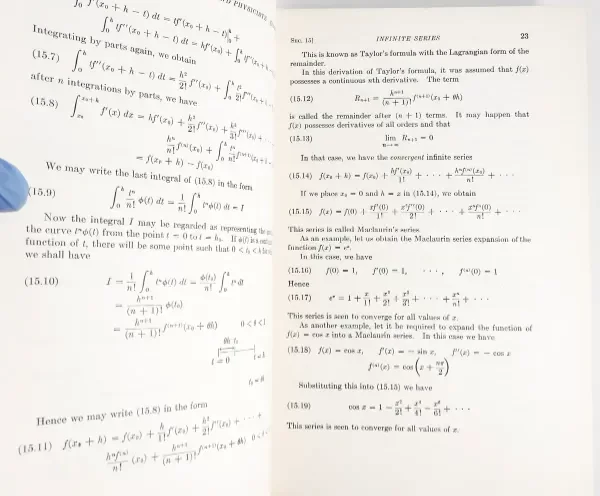 AND PHYSICISTS
∫₀ʰ f'(x₀ + h − t) dt = tf'(x₀ + h − t)|₀ʰ +
∫₀ʰ tf''(x₀ + h − t) dt = hf'(x₀) + ∫₀ʰ tf''(x₀ + h
Integrating by parts again, we obtain
(15.7) ∫₀ʰ tf''(x₀ + h − t) dt = h²/2! f''(x₀) + ∫₀ʰ t²/2! f'''(x₀ + h
after n integrations by parts, we have
(15.8) ∫ₓ₀ˣ⁰⁺ʰ f'(x) dx = hf'(x₀) + h²/2! f''(x₀) + h³/3! f'''(x₀) + · · ·
hⁿ/n! f⁽ⁿ⁾(x₀) + ∫₀ʰ tⁿ/n! f⁽ⁿ⁺¹⁾(x₀ + h
= f(x₀ + h) − f(x₀)
We may write the last integral of (15.8) in the form
(15.9) ∫₀ʰ tⁿ/n! φ(t) dt = 1/n! ∫₀ʰ tⁿφ(t) dt = I
Now the integral I may be regarded as representing the
the curve tⁿφ(t) from the point t = 0 to t = h. If φ(t) is a
function of t, there will be some point such that 0 < t₀ < h
we shall have
(15.10) I = 1/n! ∫₀ʰ tⁿφ(t) dt = φ(t₀)/n! ∫₀ʰ tⁿ dt
= hⁿ⁺¹/(n + 1)! φ(t₀)
= hⁿ⁺¹/(n + 1)! f⁽ⁿ⁺¹⁾(x₀ + θh) 0 < θ < 1
θh t₀
t = 0 t = h
t₀ = θ
Hence we may write (15.8) in the form
(15.11) f(x₀ + h) = f(x₀) + h/1! f'(x₀) + h²/2! f''(x₀) + · · · +
hⁿf⁽ⁿ⁾/n! (x₀) + hⁿ⁺¹/(n + 1)! f⁽ⁿ⁺¹⁾(x₀ + θh) 0 <
SEC. 15] INFINITE SERIES 23
This is known as Taylor's formula with the Lagrangian form of the
remainder.
In this derivation of Taylor's formula, it was assumed that f(x)
possesses a continuous nth derivative. The term
(15.12) Rₙ₊₁ = hⁿ⁺¹/(n + 1)! f⁽ⁿ⁺¹⁾(x₀ + θh)
is called the remainder after (n + 1) terms. It may happen that
f(x) possesses derivatives of all orders and that
(15.13) lim Rₙ₊₁ = 0
n→∞
In that case, we have the convergent infinite series
(15.14) f(x₀ + h) = f(x₀) + hf'(x₀)/1! + · · · + hⁿf⁽ⁿ⁾(x₀)/n! + · · ·
If we place x₀ = 0 and h = x in (15.14), we obtain
(15.15) f(x) = f(0) + xf'(0)/1! + x²f''(0)/2! + · · · + xⁿfⁿ(0)/n! + · · ·
This series is called Maclaurin's series.
As an example, let us obtain the Maclaurin series expansion of the
function f(x) = eˣ.
In this case, we have
(15.16) f(0) = 1, f'(0) = 1, · · · , f⁽ⁿ⁾(0) = 1
Hence
(15.17) eˣ = 1 + x/1! + x²/2! + x³/3! + · · · + xⁿ/n! + · · ·
This series is seen to converge for all values of x.
As another example, let it be required to expand the function of
f(x) = cos x into a Maclaurin series. In this case we have
(15.18) f(x) = cos x, f'(x) = − sin x, f''(x) = − cos x
f⁽ⁿ⁾(x) = cos (x + nπ/2)
Substituting this into (15.15) we have
(15.19) cos x = 1 − x²/2! + x⁴/4! − x⁶/6! + · · ·
This series is seen to converge for all values of x.